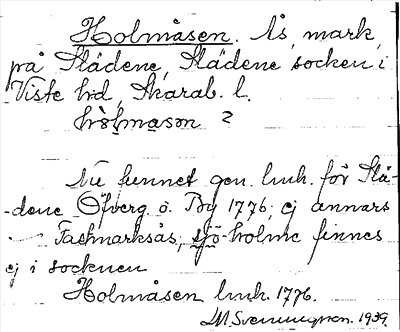 Holmåsen. Ås, mark,
på Slädene, Slädene socken i
Viste hd, Skarab. l.
hòlmason ?
Nu funnet gen. lmh. för Slä-
-dene Öfverg. o. By 1776; ej annars
- Fastmarksås, sjö-holme finnes
ej i socknen
Holmåsen lmh. 1776.
M. Svenungson. 1939.